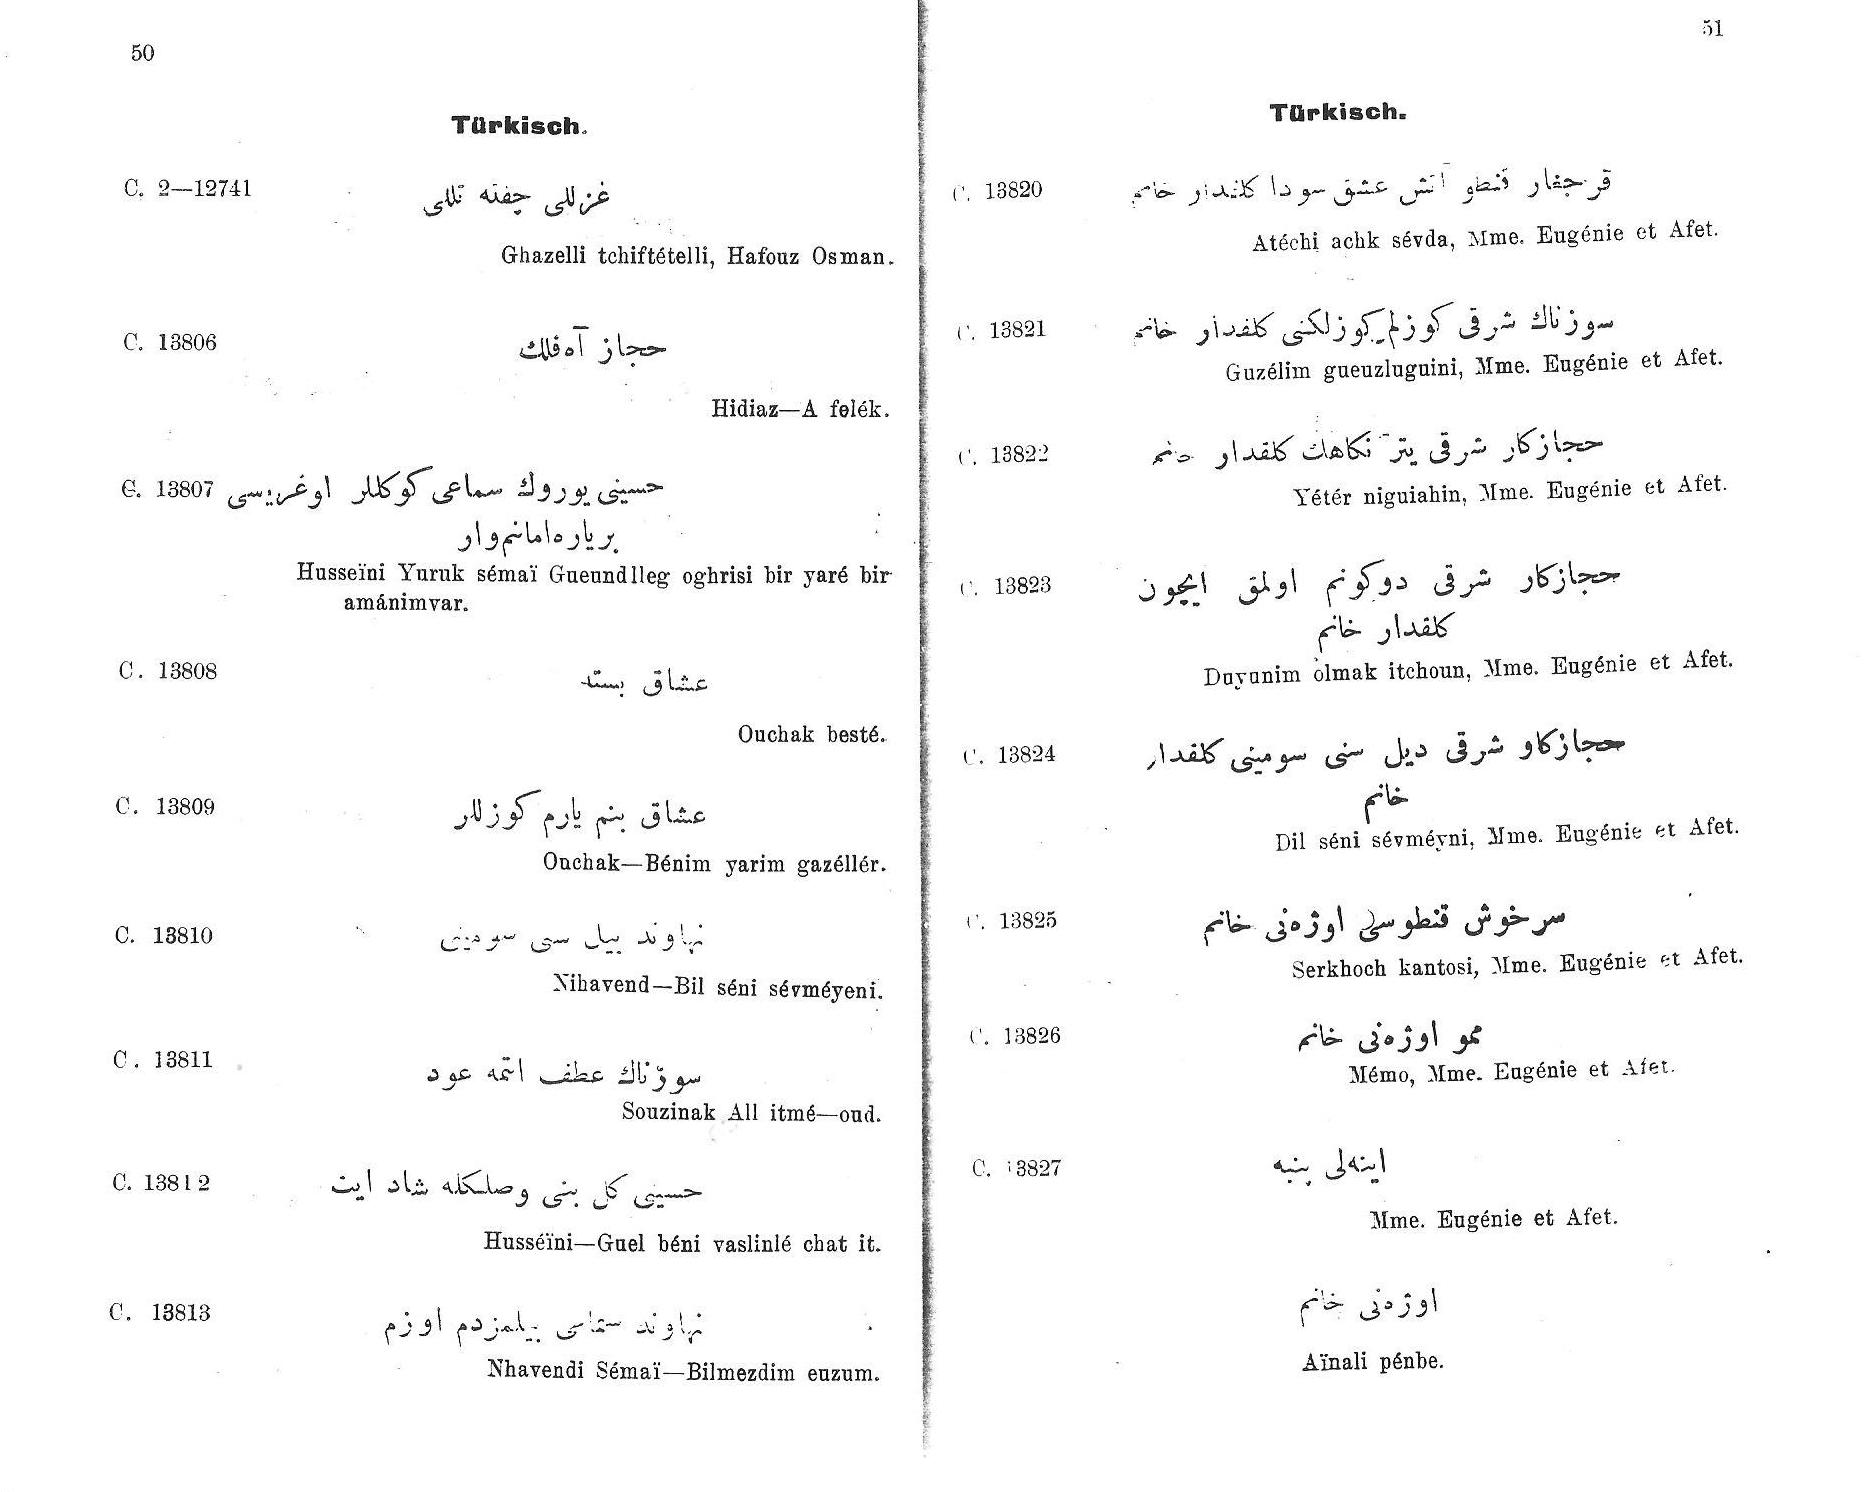 50
Türkisch.
C. 2—12741 غزللی چفته تللی
Ghazelli tchiftételli, Hafouz Osman.
C. 13806 حجاز آه فلك
Hidiaz—A felék.
C. 13807 حسینی یوروك سماعی كوكللر اوغریسی
بریاره امانم وار
Husseïni Yuruk sémaï Gueundlleg oghrisi bir yaré bir
amánimvar.
C. 13808 عشاق بسته
Ouchak besté.
C. 13809 عشاق بنم یارم كوزللر
Ouchak—Bénim yarim gazéllér.
C. 13810 نهاوند بیل سی سومینی
Nihavend—Bil séni sévméyeni.
C. 13811 سوزناك عطف اتمه عود
Souzinak All itmé—oud.
C. 13812 حسینی كل بنی وصلكله شاد ایت
Husséïni—Guel béni vaslinlé chat it.
C. 13813 نهاوند سماسی بیلمزدم اوزم
Nhavendi Sémaï—Bilmezdim euzum.
51
Türkisch.
C. 13820 قرجغار قنطو آتش عشق سودا خانم
Atéchi achk sévda, Mme. Eugénie et Afet.
C. 13821 سوزناك شرقی كوزلم كوزلكنی كلفدار خانم
Guzélim gueuzluguini, Mme. Eugénie et Afet.
C. 13822 حجازكار شرقی یتر نكاهك كلفدار خانم
Yétér niguiahin, Mme. Eugénie et Afet.
C. 13823 حجازكار شرقی دوكونم اولمق ایچون
كلفدار خانم
Duyunim olmak itchoun, Mme. Eugénie et Afet.
C. 13824 حجازكاو شرقی دیل سنی سومینی كلفدار
خانم
Dil séni sévméyni, Mme. Eugénie et Afet.
C. 13825 سرخوش قنطوسی اوژه‌نی خانم
Serkhoch kantosi, Mme. Eugénie et Afet.
C. 13826 ممو اوژه‌نی خانم
Mémo, Mme. Eugénie et Afet.
C. 13827 اینه‌لی پنبه
Mme. Eugénie et Afet.
اوژه‌نی خانم
Aïnali pénbe.